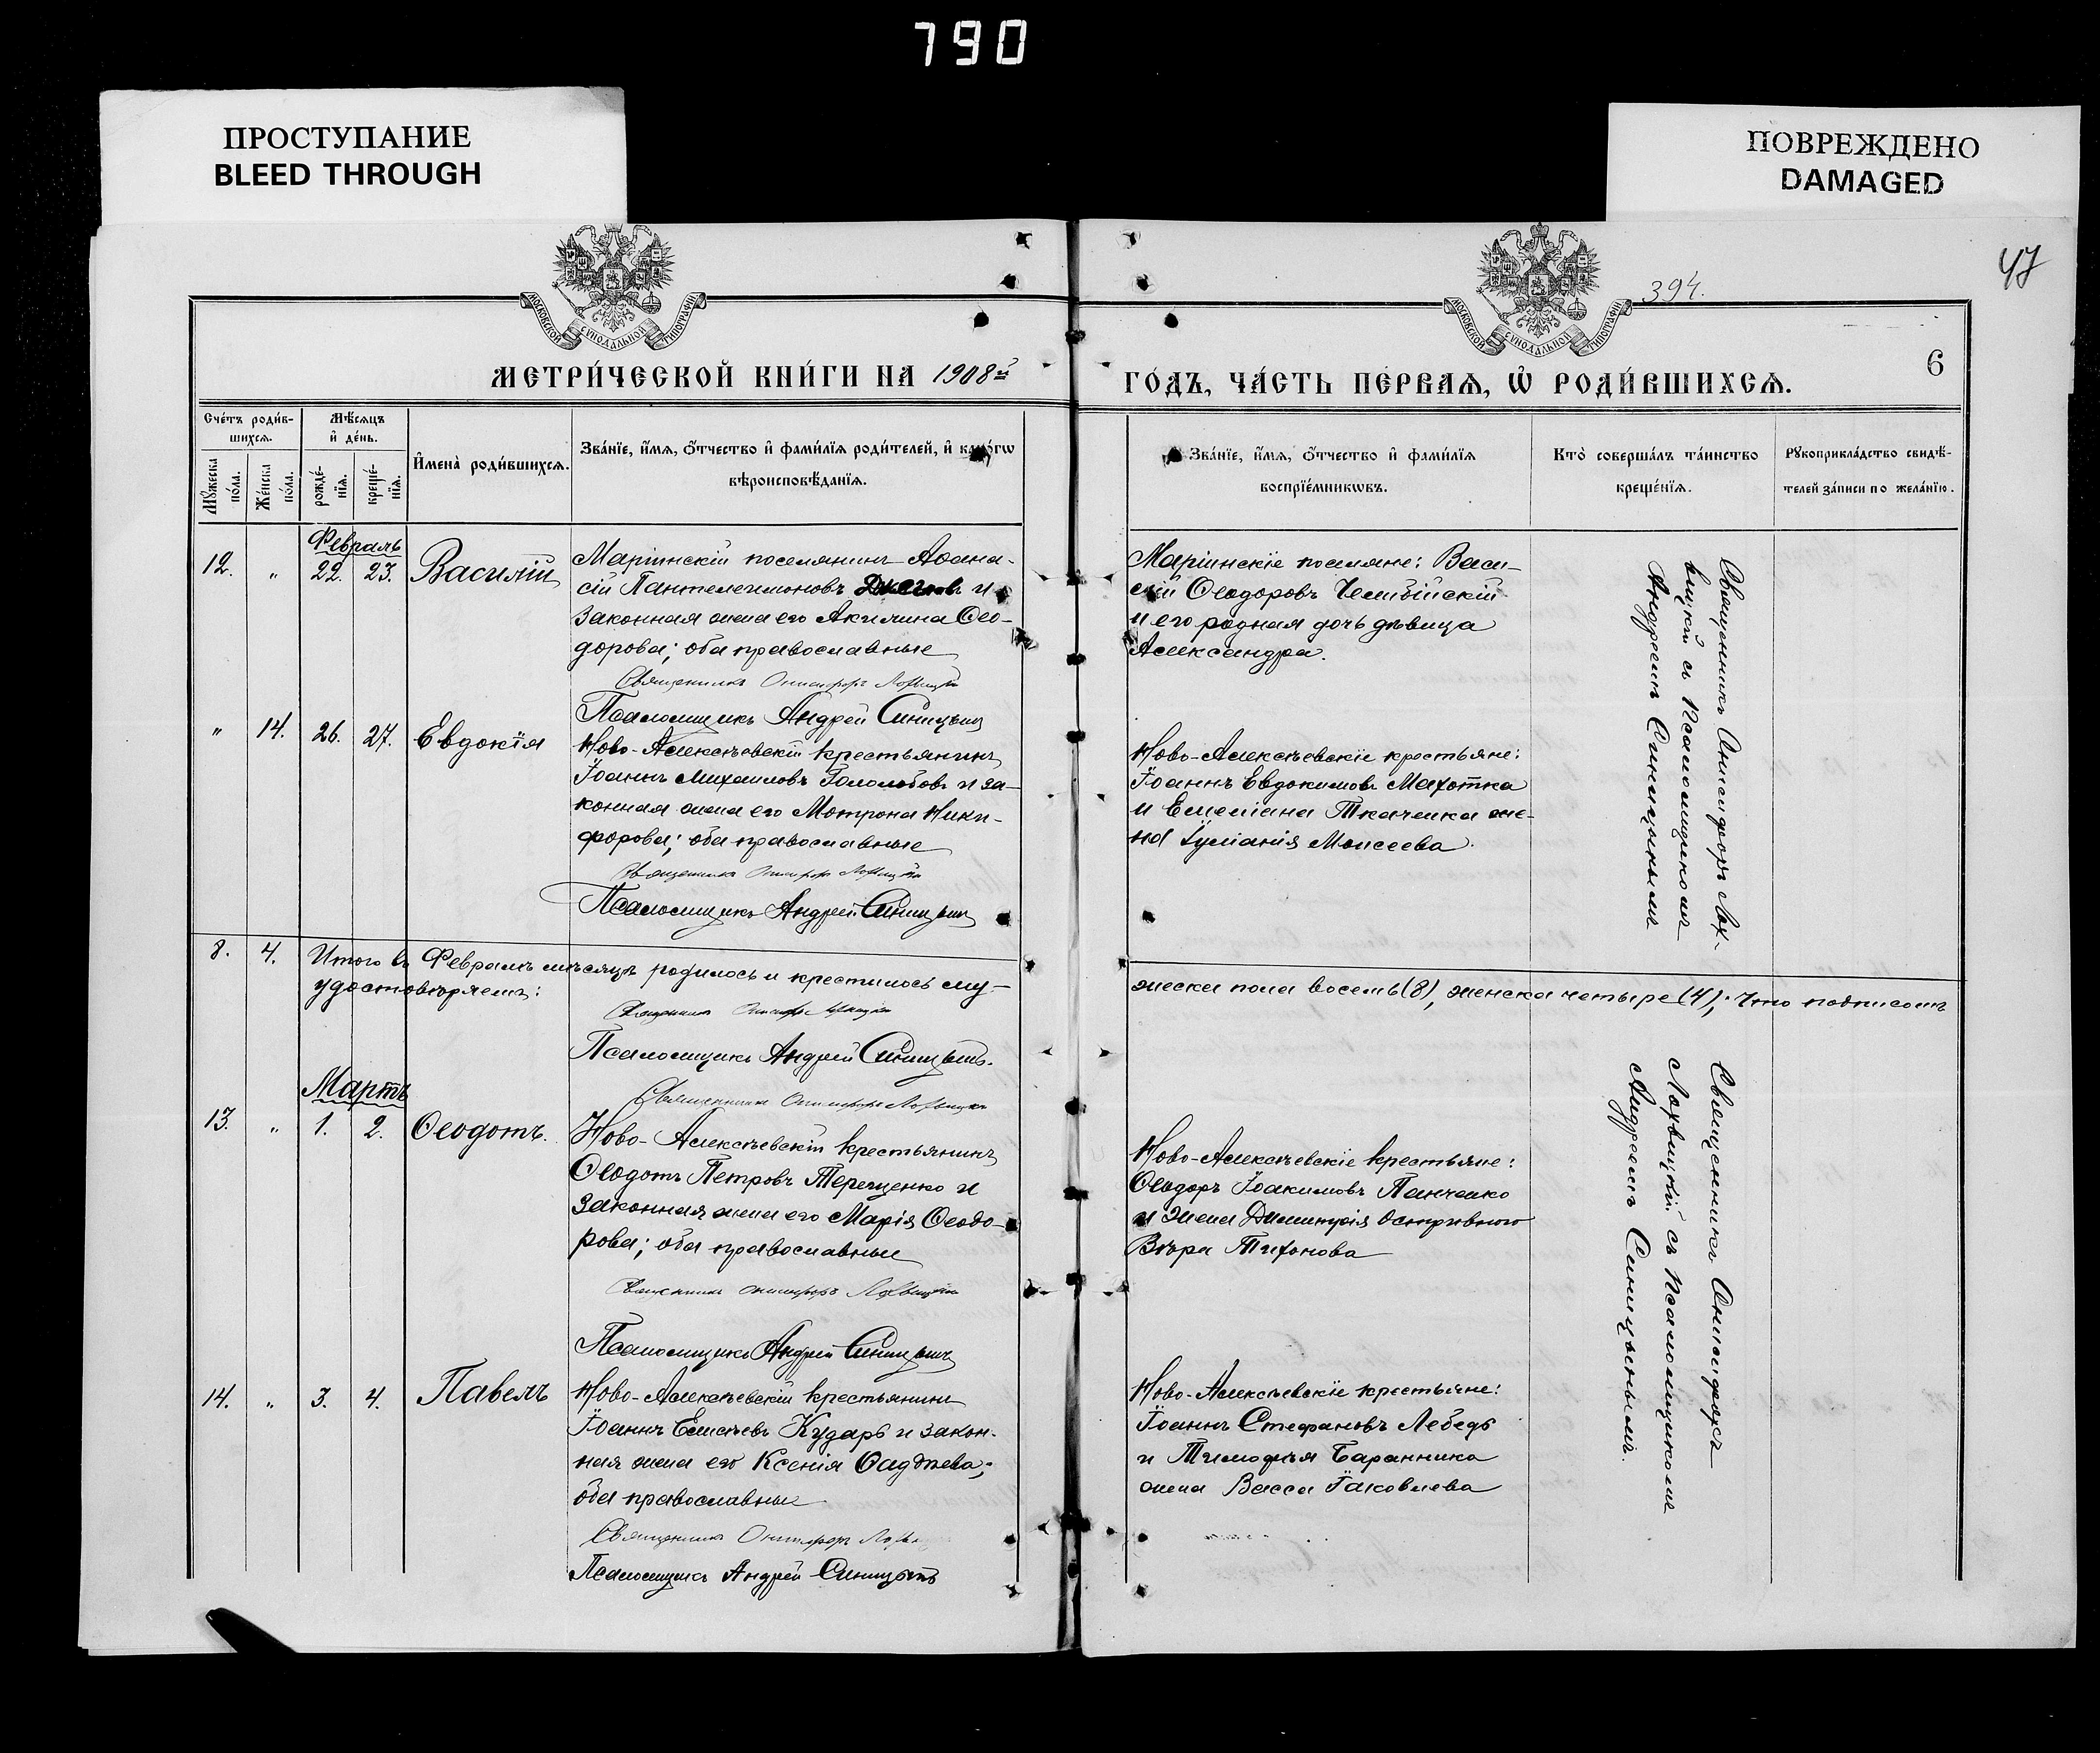 790
ПРОСТУПАНИЕ
BLEED THROUGH
ПОВРЕЖДЕНО
DAMAGED
47
394.
МОСКОВСКОЙ СѴНОДАЛЬНОЙ ТИПОГРАФІИ
МОСКОВСКОЙ СѴНОДАЛЬНОЙ ТИПОГРАФІИ
6
МЕТРИ́ЧЕСКОЙ КНИ́ГИ НА 1908й
ГО́ДЪ, ЧА́СТЬ ПЕ́РВАѦ, Ѽ РОДИ́ВШИХСѦ.
Сче́тъ роди́в-
шихсѧ.
Мꙋжеска по́ла.
Же́нска по́ла.
Мѣ́сѧцъ
и҆ де́нь.
рожде́-
нїѧ.
креще́-
нїѧ.
И҆мена̀ роди́вшихсѧ.
Зва́нїе, и҆́мѧ, ѻ҆́тчество и҆ фами́лїѧ роди́телей, и҆ како́гѡ
вѣроисповѣ́данїѧ.
Зва́нїе, и҆́мѧ, ѻ҆́тчество и҆ фами́лїѧ
воспрїе́мникѡвъ.
Кто̀ соверша́лъ та́инство
креще́нїѧ.
Рꙋкоприкла́дство свидѣ́-
телей за́писи по жела́нїю.
Февраль
12. „ 22. 23. Василій
Маріинскій поселянинъ Аѳана-
сій Пантелеимоновъ и
законная жена его Акилина Ѳео-
дорова; оба православные
Священникъ Онисифоръ Лохвицкій
Псаломщикъ Андрей Синицынъ
Маріинскіе поселяне: Васи-
лій Ѳеодоровъ
и его родная дочь дѣвица
Александра.
Священникъ Онисифоръ Лох-
вицкій съ Псаломщикомъ
Андреемъ Синицынымъ
„ 14. 26. 27. Евдокія
Ново-Алексѣевскій крестьянинъ
Іоаннъ Михаиловъ Гололобовъ и за-
конная жена его Мотрона Ники-
форова; оба православные
Священникъ Онисифоръ Лохвицкій
Псаломщикъ Андрей Синицынъ
Ново-Алексѣевскіе крестьяне:
Іоаннъ Евдокимовъ Махотка
и Емеліана Ткаченка же-
на Іуліанія Моисеева.
8. 4. Итого въ Февралѣ мѣсяцѣ родилось и крестилось му-
жеска пола восемь (8), женска четыре (4); что подписомъ
удостовѣряемъ:
Священникъ Онисифоръ Лохвицкій
Псаломщикъ Андрей Синицынъ.
Священникъ Онисифоръ Лохвицкій
Мартъ
13. „ 1. 2. Ѳеодотъ.
Ново-Алексѣевскій крестьянинъ
Ѳеодотъ Петровъ Терещенко и
законная жена его Марія Ѳеодо-
рова; оба православные
Священникъ Онисифоръ Лохвицкій
Псаломщикъ Андрей Синицынъ
Ново-Алексѣевскіе крестьяне:
Ѳеодоръ Іоакимовъ Панченко
и жена Димитрія Остривного
Вѣра Тихонова
Священникъ Онисифоръ
Лохвицкій съ Псаломщикомъ
Андреемъ Синицынымъ.
14. „ 3. 4. Павелъ
Ново-Алексѣевскій крестьянинъ
Іоаннъ Елисѣевъ Кударь и закон-
ная жена его Ксенія Ѳаддѣева;
оба православные
Священникъ Онисифоръ Лохв
Псаломщикъ Андрей Синицынъ
Ново-Алексѣевскіе крестьяне:
Іоаннъ Стефановъ Лебедь
и Тимофѣя Баранника
жена Васса Іаковлева